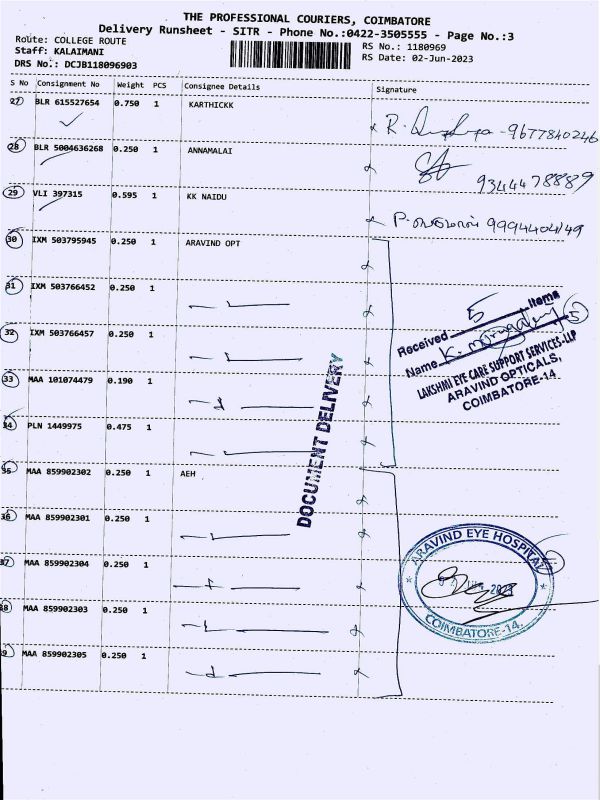 THE PROFESSIONAL COURIERS, COIMBATORE
Delivery Runsheet - SITR - Phone No.:0422-3505555 - Page No.:3
Route: COLLEGE ROUTE
Staff: KALAIMANI
DRS No.: DCJB118096903
RS No.: 1180969
RS Date: 02-Jun-2023
S No Consignment No Weight PCS Consignee Details Signature
27 BLR 615527654 0.750 1 KARTHICKK
R. -9677840246
28 BLR 5004636268 0.250 1 ANNAMALAI
9344478889
29 VLI 397315 0.595 1 KK NAIDU
P. 9994404149
30 IXM 503795945 0.250 1 ARAVIND OPT
31 IXM 503766452 0.250 1
32 IXM 503766457 0.250 1
33 MAA 101074479 0.190 1
34 PLN 1449975 0.475 1
35 MAA 859902302 0.250 1 AEH
36 MAA 859902301 0.250 1
37 MAA 859902304 0.250 1
38 MAA 859902303 0.250 1
39 MAA 859902305 0.250 1
DOCUMENT DELIVERY
Received 5 Items
Name K. 5
LAKSHMI EYE CARE SUPPORT SERVICES-LLP
ARAVIND OPTICALS,
COIMBATORE-14
ARAVIND EYE HOSPITAL
COIMBATORE-14.